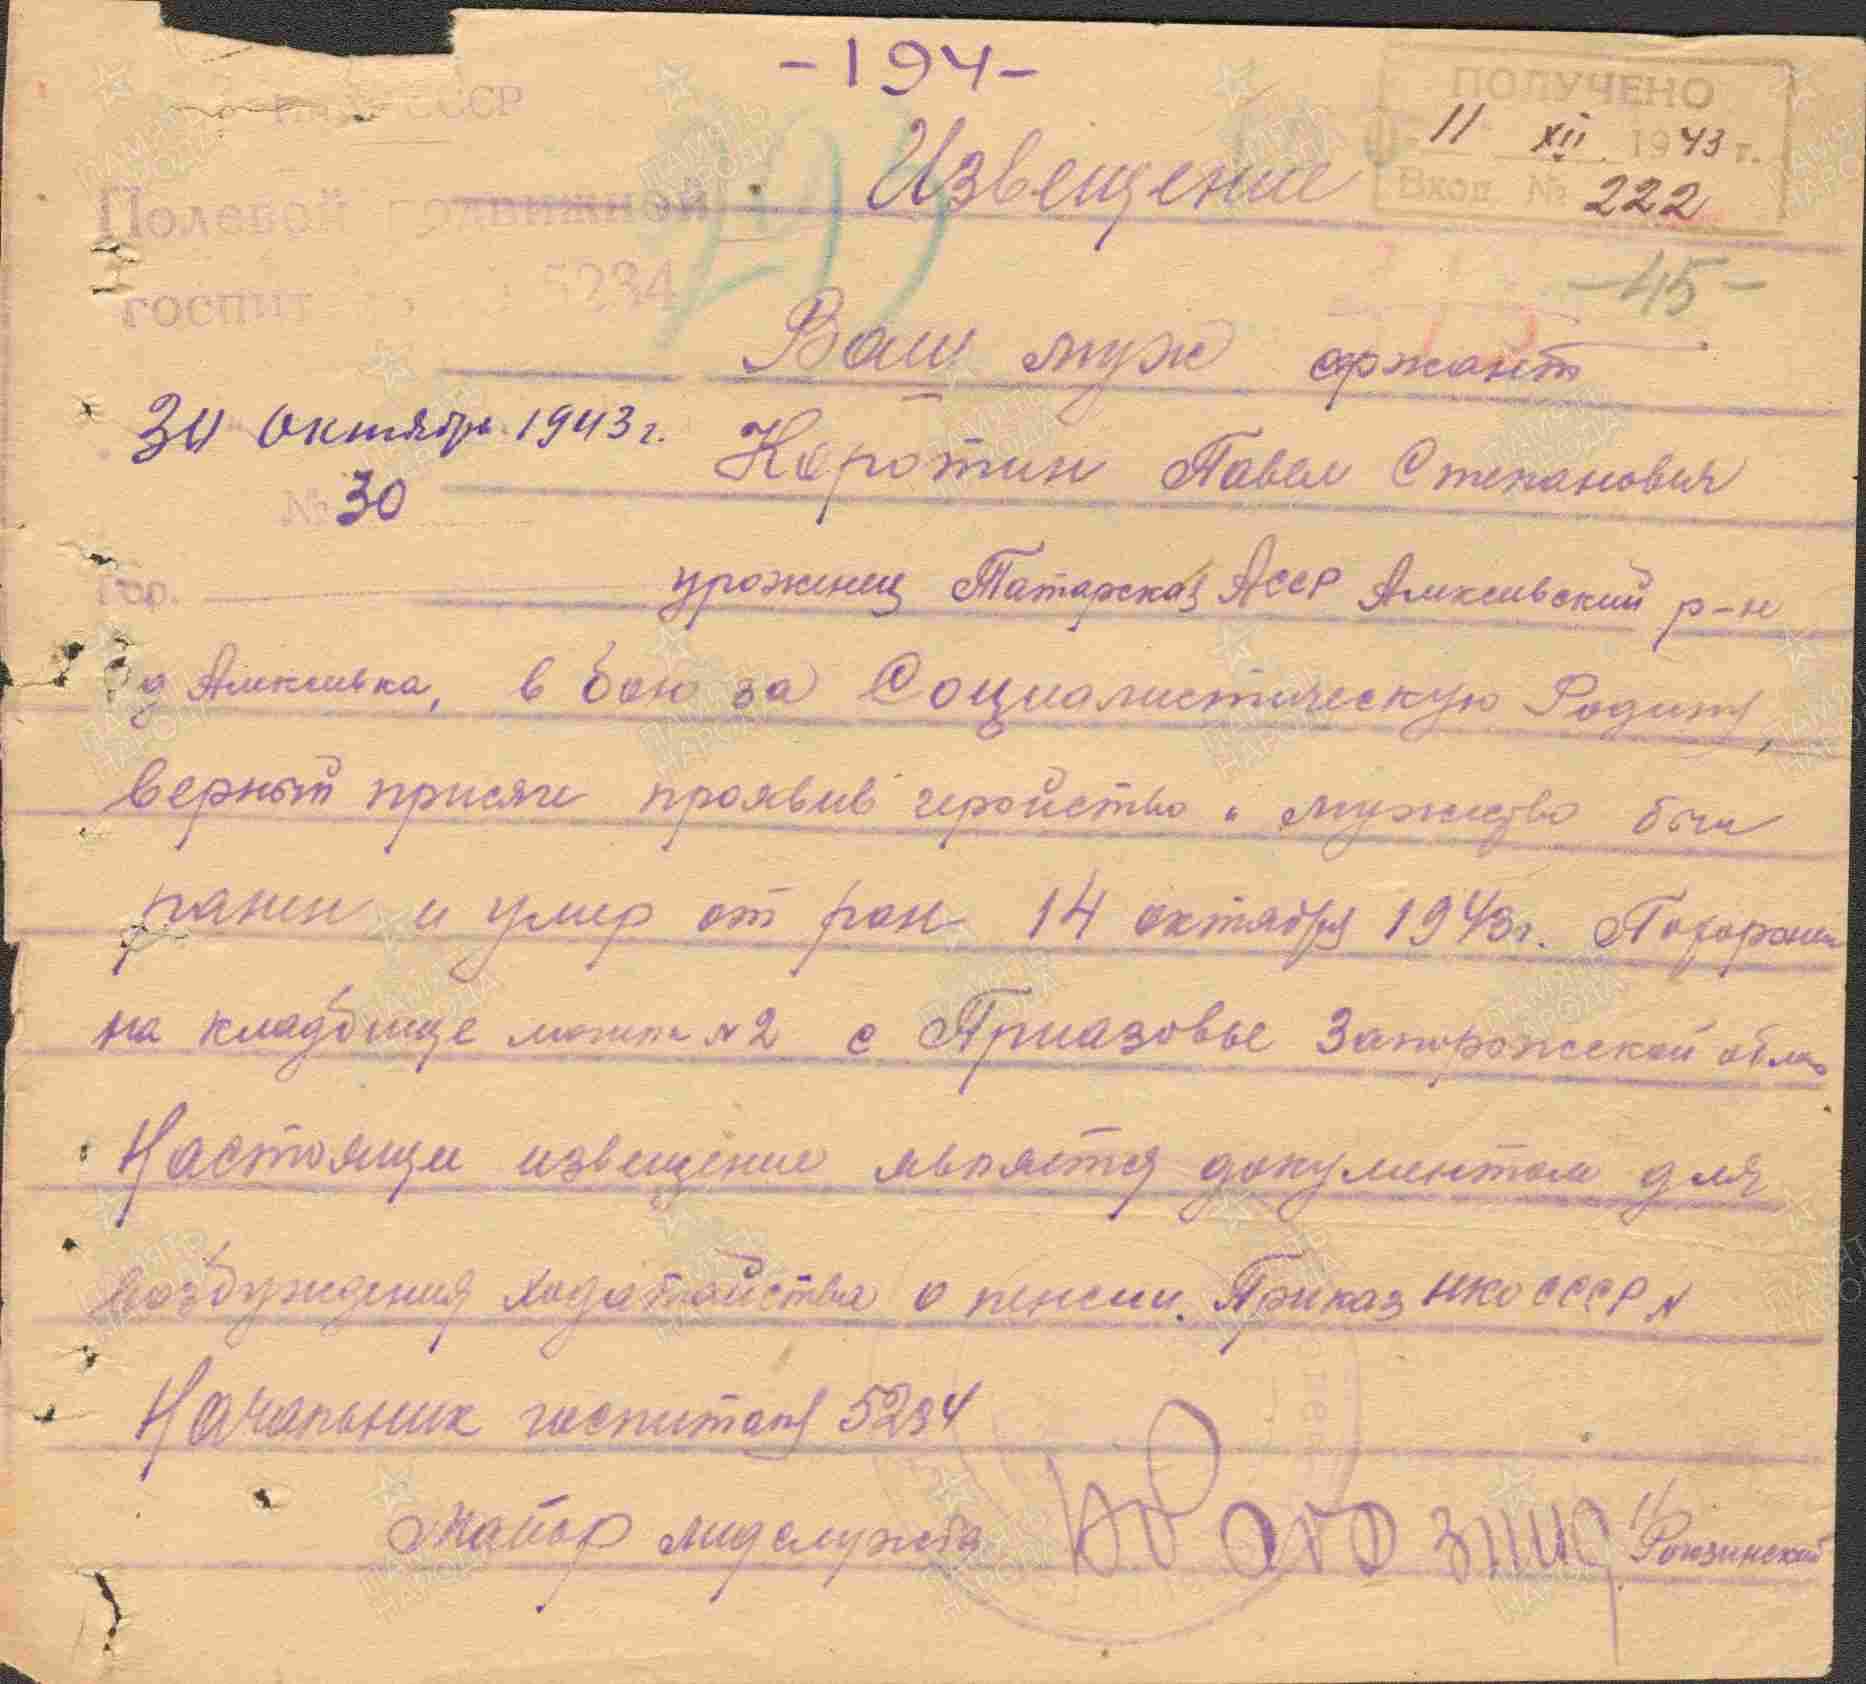 -194-
СССР
ПОЛУЧЕНО
11 XII 1943 г.
Вход № 222
Извещение
Полевой подвижной
госпит 5234
-45-
Ваш муж сержант
30 октября 1943 г.
Коротин Павел Степанович
№ 30
гор.
уроженец Татарская АССР Алексеевский р-н
д Алексеевка, в бою за Социалистическую Родину,
верный присяге проявив геройство и мужество был
ранен и умер от ран 14 октября 1943г. Похоронен
на кладбище могила №2 с Приазовье Запорожской облас
Настоящее извещение является документом для
возбуждения ходатайства о пенсии. Приказ НКО СССР №
Начальник госпиталя 5234
Майор медслужбы